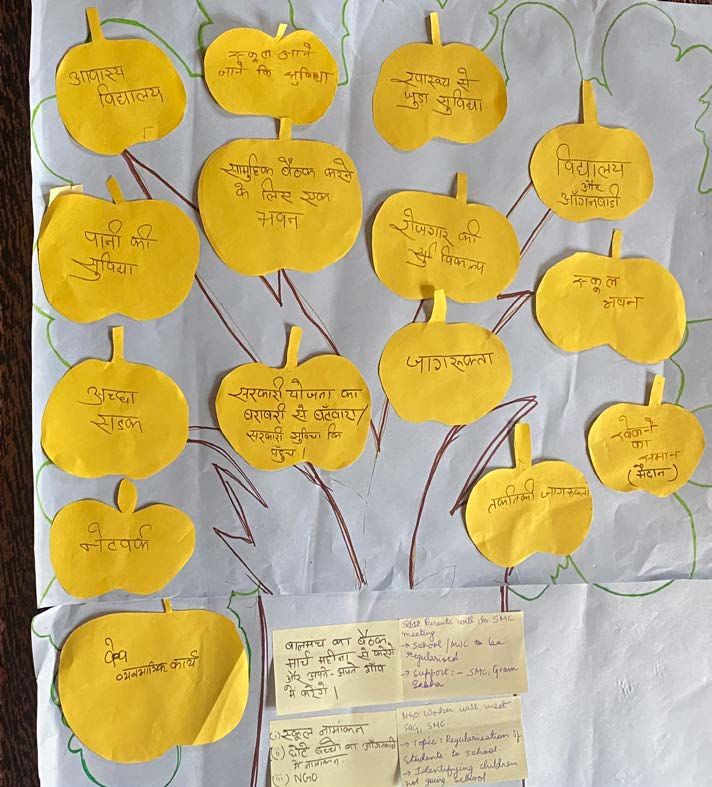 आवास्य
विद्यालय
स्कूल आने
जाने कि सुविधा
स्वास्थ्य से
जुडा सुविधा
सामुहिक बैठक करने
के लिए एक
भवन
विद्यालय
और
आँगनवाडी
पानी की
सुविधा
रोजगार की
सुविकल्प
स्कूल
भवन
अच्छा
सडक
सरकारी योजना का
बराबरी से बँटवारा/
सरकारी सुविधा कि
पहुँच।
जागरूकता
खेलने
का
समान
(मैदान)
तकनिकी जागरूकता
नेटवर्क
व्यवसायिक कार्य
बालमंच का बैठक
मार्च महीना से करेंगे
और अपने-अपने गाँव
में करेंगे।
Parents will do SMC
meeting
→ School/MWC to be
regularised
→ Support:- SMC, Gram
Sabha
(i) स्कूल नामांकन
(ii) छोटे बच्चों का आँगनबाडी
में नामांकन
(iii) NGO
NGO Worker will meet
SAG, SMC
→ Topic: Regularisation of
students to school.
→ Identifying children
not going school